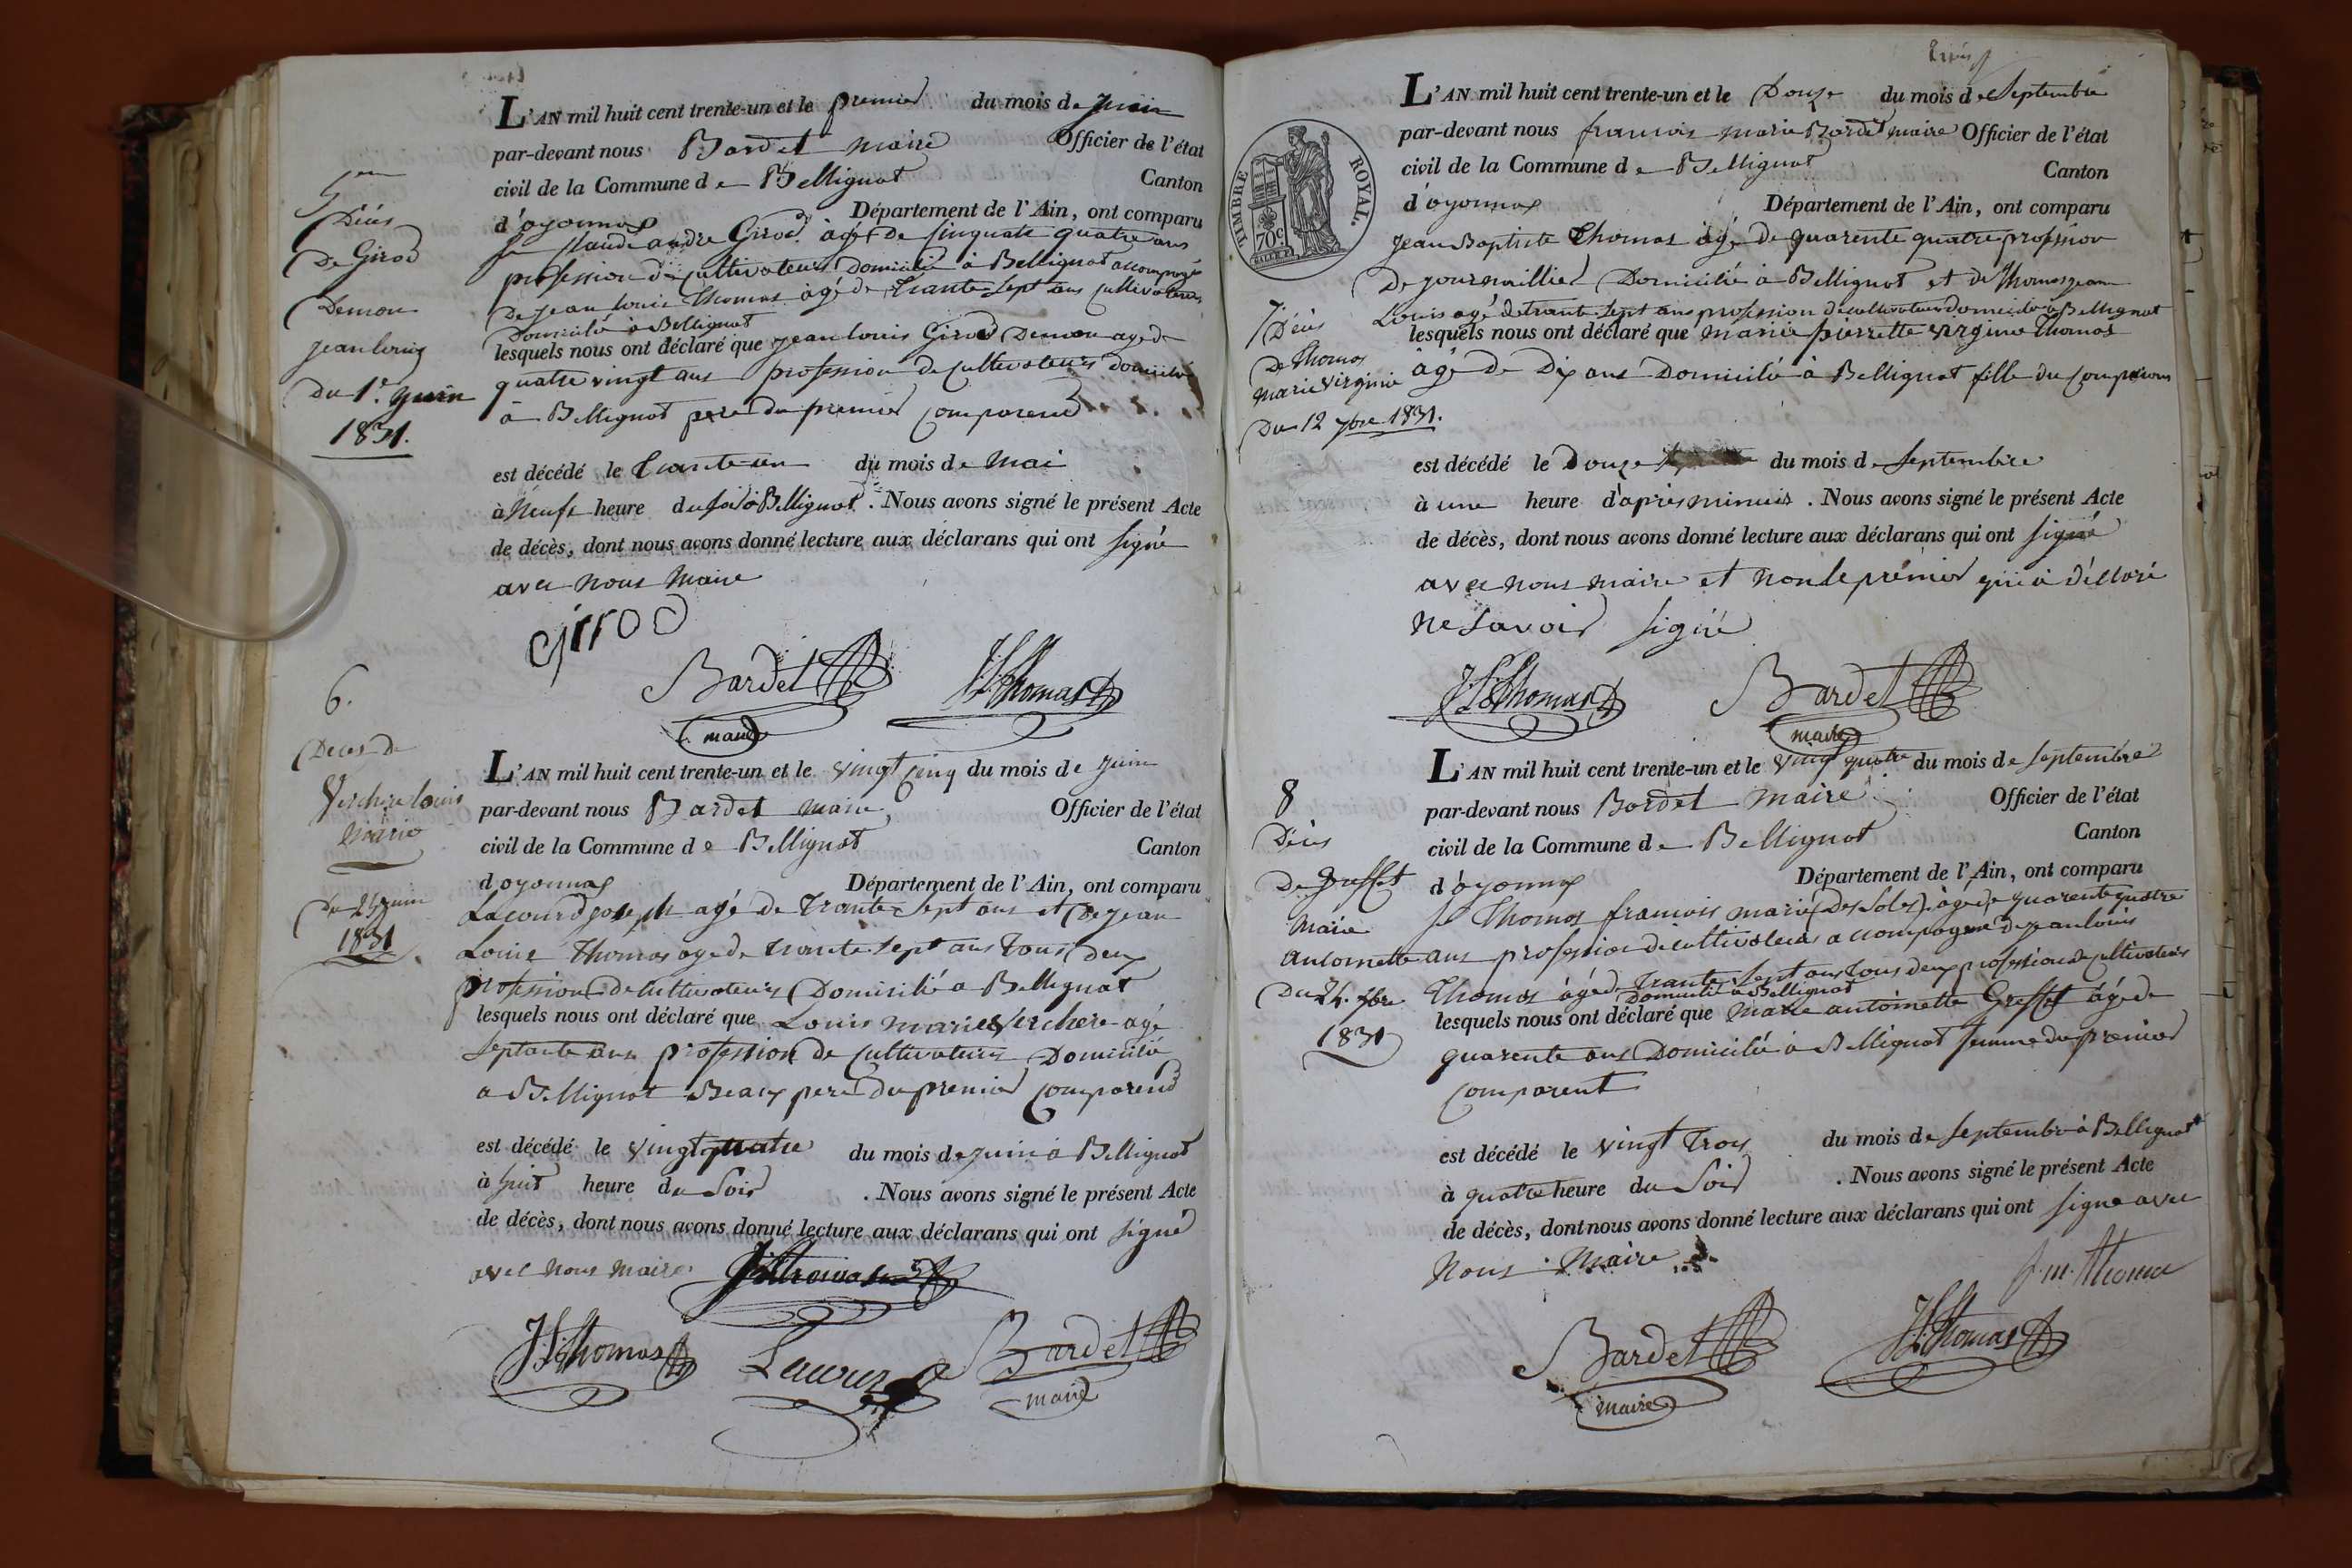 5em
Décès
De Girod
Demon
jean louis
Du 1er juin
1831.
L'AN mil huit cent trente-un et le premier du mois de juin
par-devant nous Bardet maire Officier de l'état
civil de la Commune de Bellignat Canton
d'oyonnax Département de l'Ain, ont comparu
Claude andre Girod âgé De Cinquate quatre ans
profession de Cultivateur Domicilié à Bellignat accompagné
De jean louis Thomas âgé de trante sept ans Cultivateur
Domicilié à Bellignat
lesquels nous ont déclaré que jean louis Girod Demon age de
quatre vingt ans profession de Cultivateur domicilié
à Bellignat pere du premier Comparend
est décédé le trante un du mois de Mai
à Neufe heure du soir à Bellignat. Nous avons signé le présent Acte
de décès, dont nous avons donné lecture aux déclarans qui ont signé
avec nous Maire
girod
Bardet J.L. Thomas
maire
6.
Deces de
Verchere louis
Marie
Du 25 juin
1831
L'AN mil huit cent trente-un et le vingt cinq du mois de juin
par-devant nous Bardet maire, Officier de l'état
civil de la Commune de Bellignat Canton
d'oyonnax Département de l'Ain, ont comparu
Lacour joseph agé de trante sept ans et De jean
Louis Thomas age de trante sept ans tous deux
profession de Cultivateurs Domicilié a Bellignat
lesquels nous ont déclaré que Louis Marie Verchere agé
Septante ans profession de Cultivateurs Domicilié
a Bellignat Beaux pere du premier Comparend
est décédé le vingt quatre du mois de juin à Bellignat
à huit heure du Soir . Nous avons signé le présent Acte
de décès, dont nous avons donné lecture aux déclarans qui ont signé
avec nous maire
J.L. Thomas Lacour Bardet
maire
TIMBRE ROYAL.
70c.
7
Décès
De Thomas
Marie Virginie
Du 12 7bre 1831.
L'AN mil huit cent trente-un et le Douze du mois de Septembre
par-devant nous francois marie Bardet maire Officier de l'état
civil de la Commune de Bellignat Canton
d'oyonnax Département de l'Ain, ont comparu
Jean Baptiste Thomas âgé de quarente quatre profession
De journaillier Domicilié à Bellignat et de Thomas jean
Louis agé de trante sept ans profession de cultivateur domicilié à Bellignat
lesquels nous ont déclaré que marie pierrette virginie Thomas
âgé de Dix ans Domicilié à Bellignat fille du
est décédé le Douze du mois de Septembre
à une heure d'après minuis. Nous avons signé le présent Acte
de décès, dont nous avons donné lecture aux déclarans qui ont signé
avec nous maire et non le prémier qui à déclaré
ne Savoir signé
J.L. Thomas Bardet
maire
8
Décès
De Greffet
Marie
Antoinette
Du 24. 7bre
1831
L'AN mil huit cent trente-un et le vingt quatre du mois de Septembre
par-devant nous Bardet maire Officier de l'état
civil de la Commune de Bellignat Canton
d'oyonnax Département de l'Ain, ont comparu
Thomas francois marie (Des Soles) âgé de quarente quatre
ans profession de cultivateur accompagné de jean louis
Thomas âgé de trante sept ans tous deux profession de cultivateurs
Domicilié à Bellignat
lesquels nous ont déclaré que Marie antoinette Greffet âgé de
quarente ans Domicilié à Bellignat femme du premier
Comparent
est décédé le vingt trois du mois de Septembre à Bellignat
à quatre heure du Soir . Nous avons signé le présent Acte
de décès, dont nous avons donné lecture aux déclarans qui ont signé avec
Nous Maire
f. m. Thoma
Bardet J.L. Thomas
maire